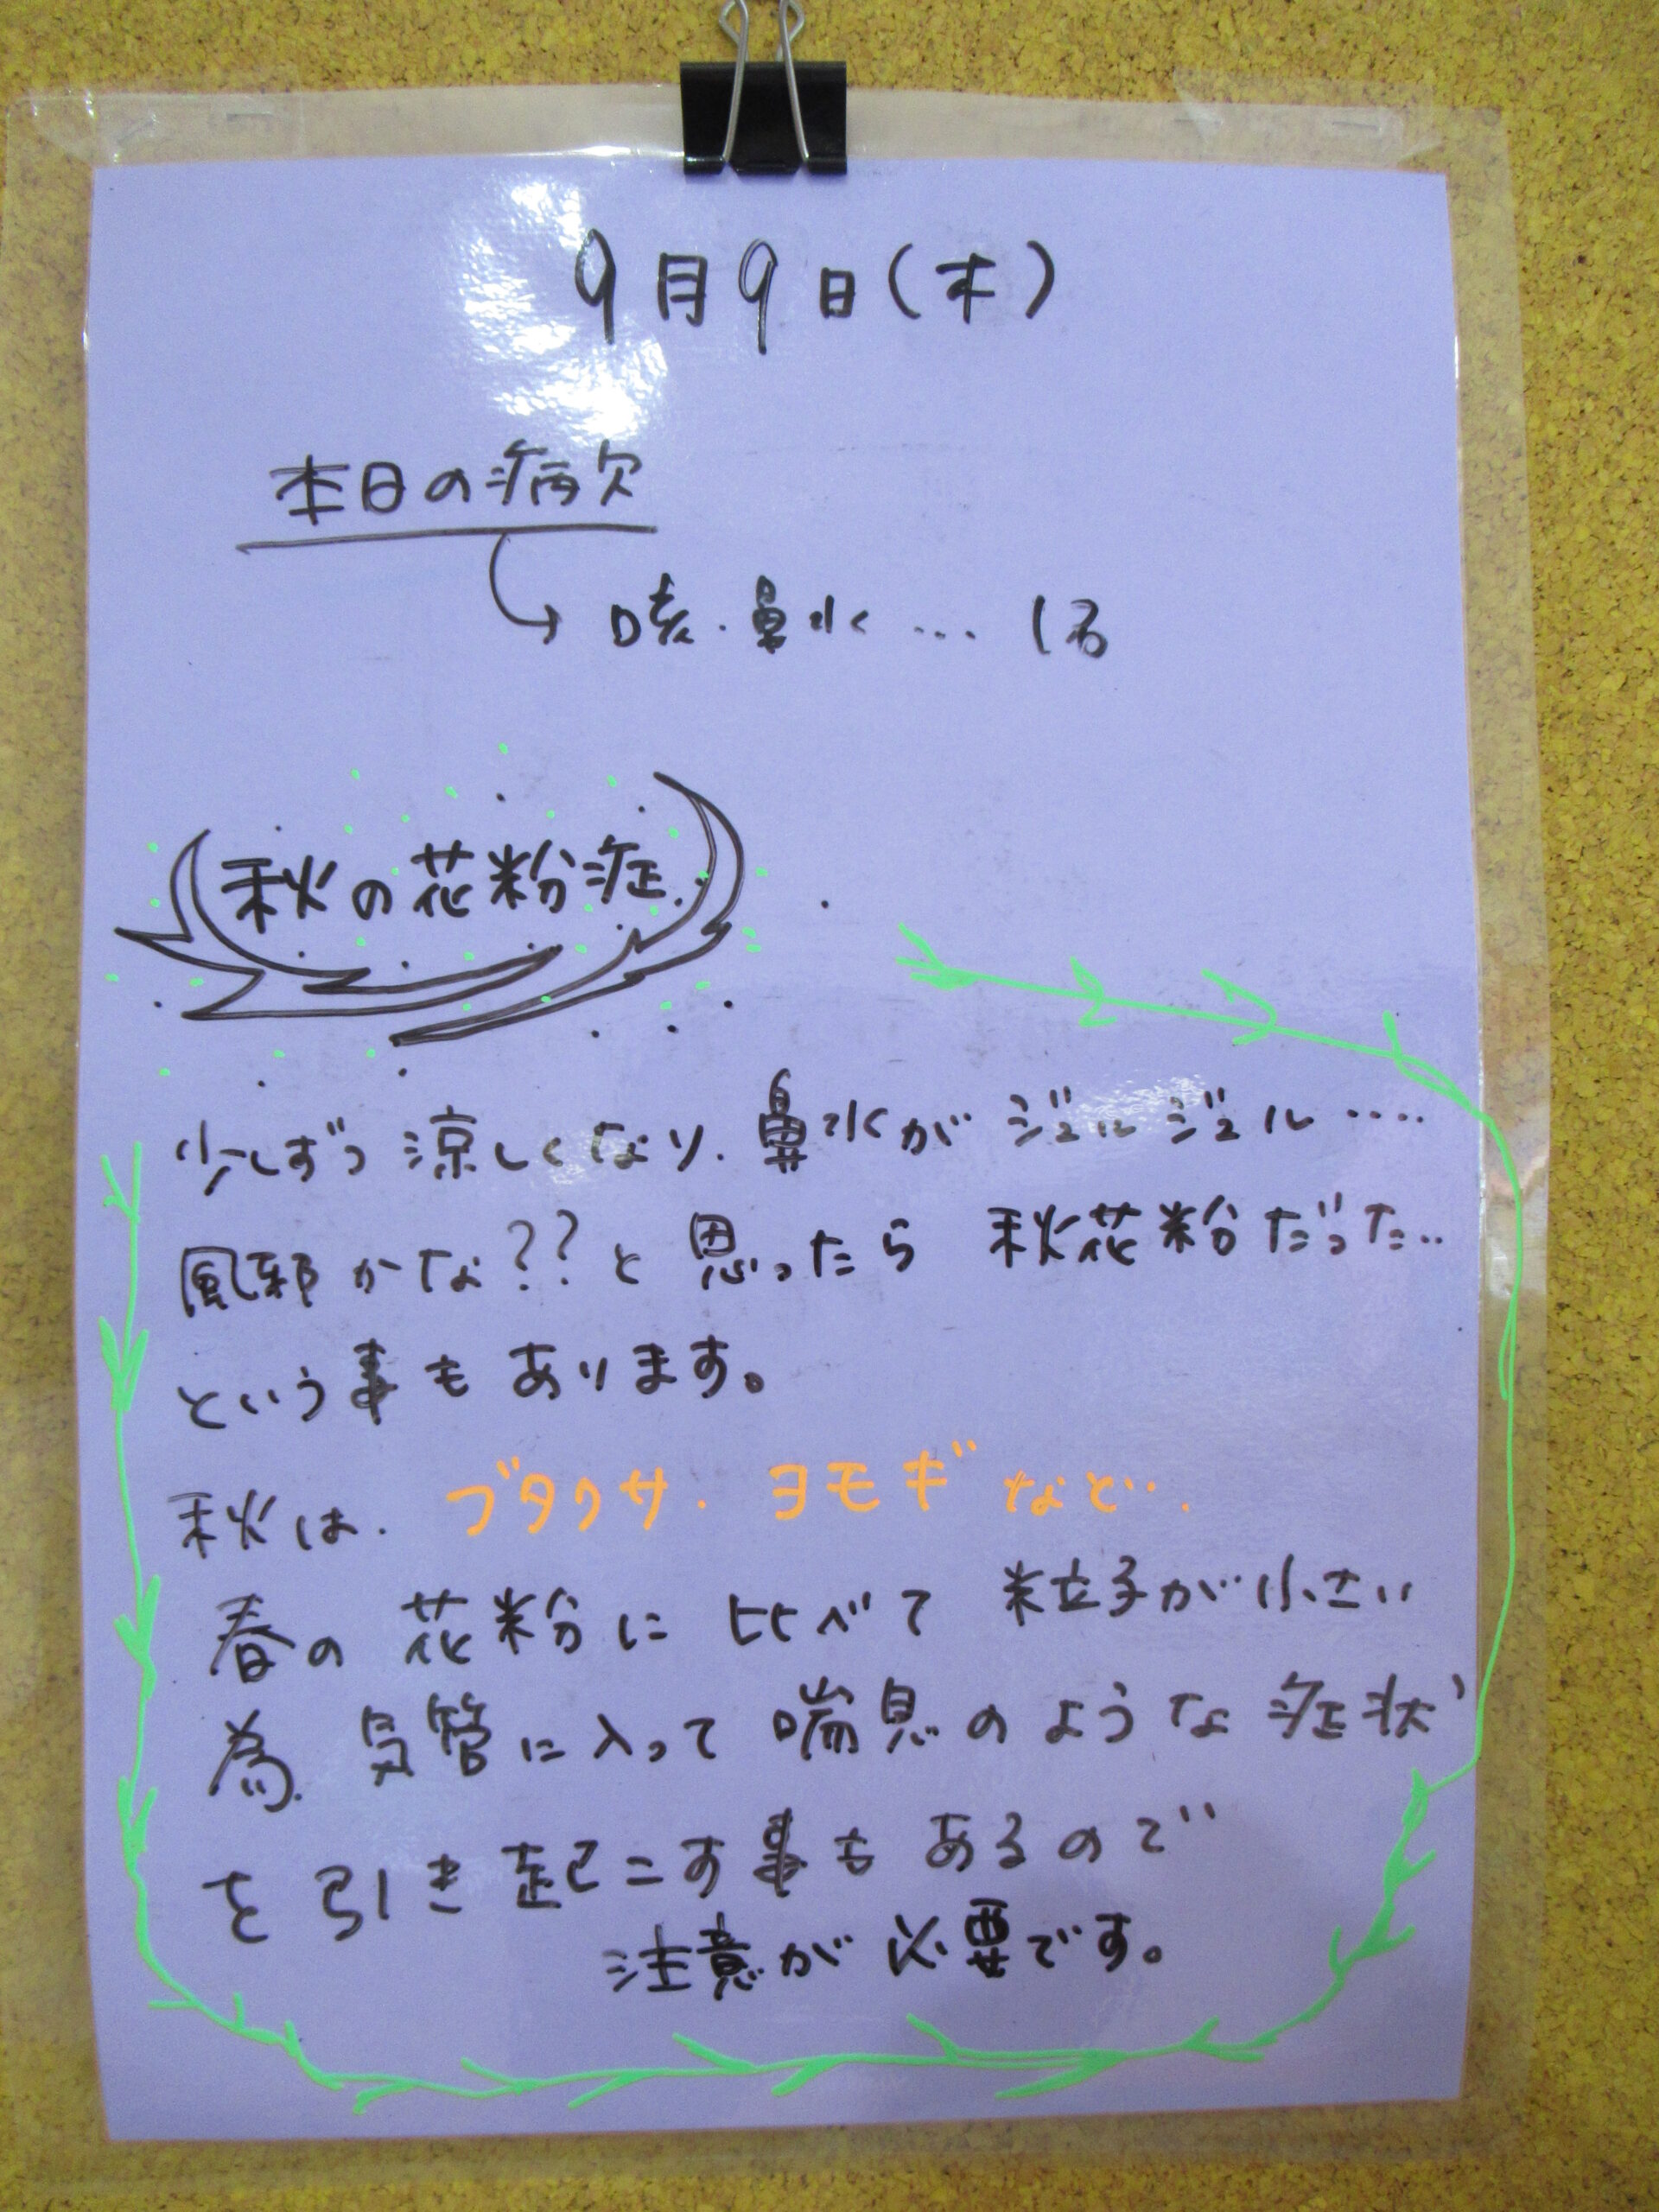 9月9日(木)
本日の病欠
咳・鼻水… 1名
秋の花粉症
少しずつ涼しくなり、鼻水がジュルジュル‥‥
風邪かな??と思ったら秋花粉だった‥
という事もあります。
秋は、ブタクサ、ヨモギなど‥.
春の花粉に比べて粒子が小さい
為、気管に入って喘息のような症状
を引き起こす事もあるので
注意が必要です。